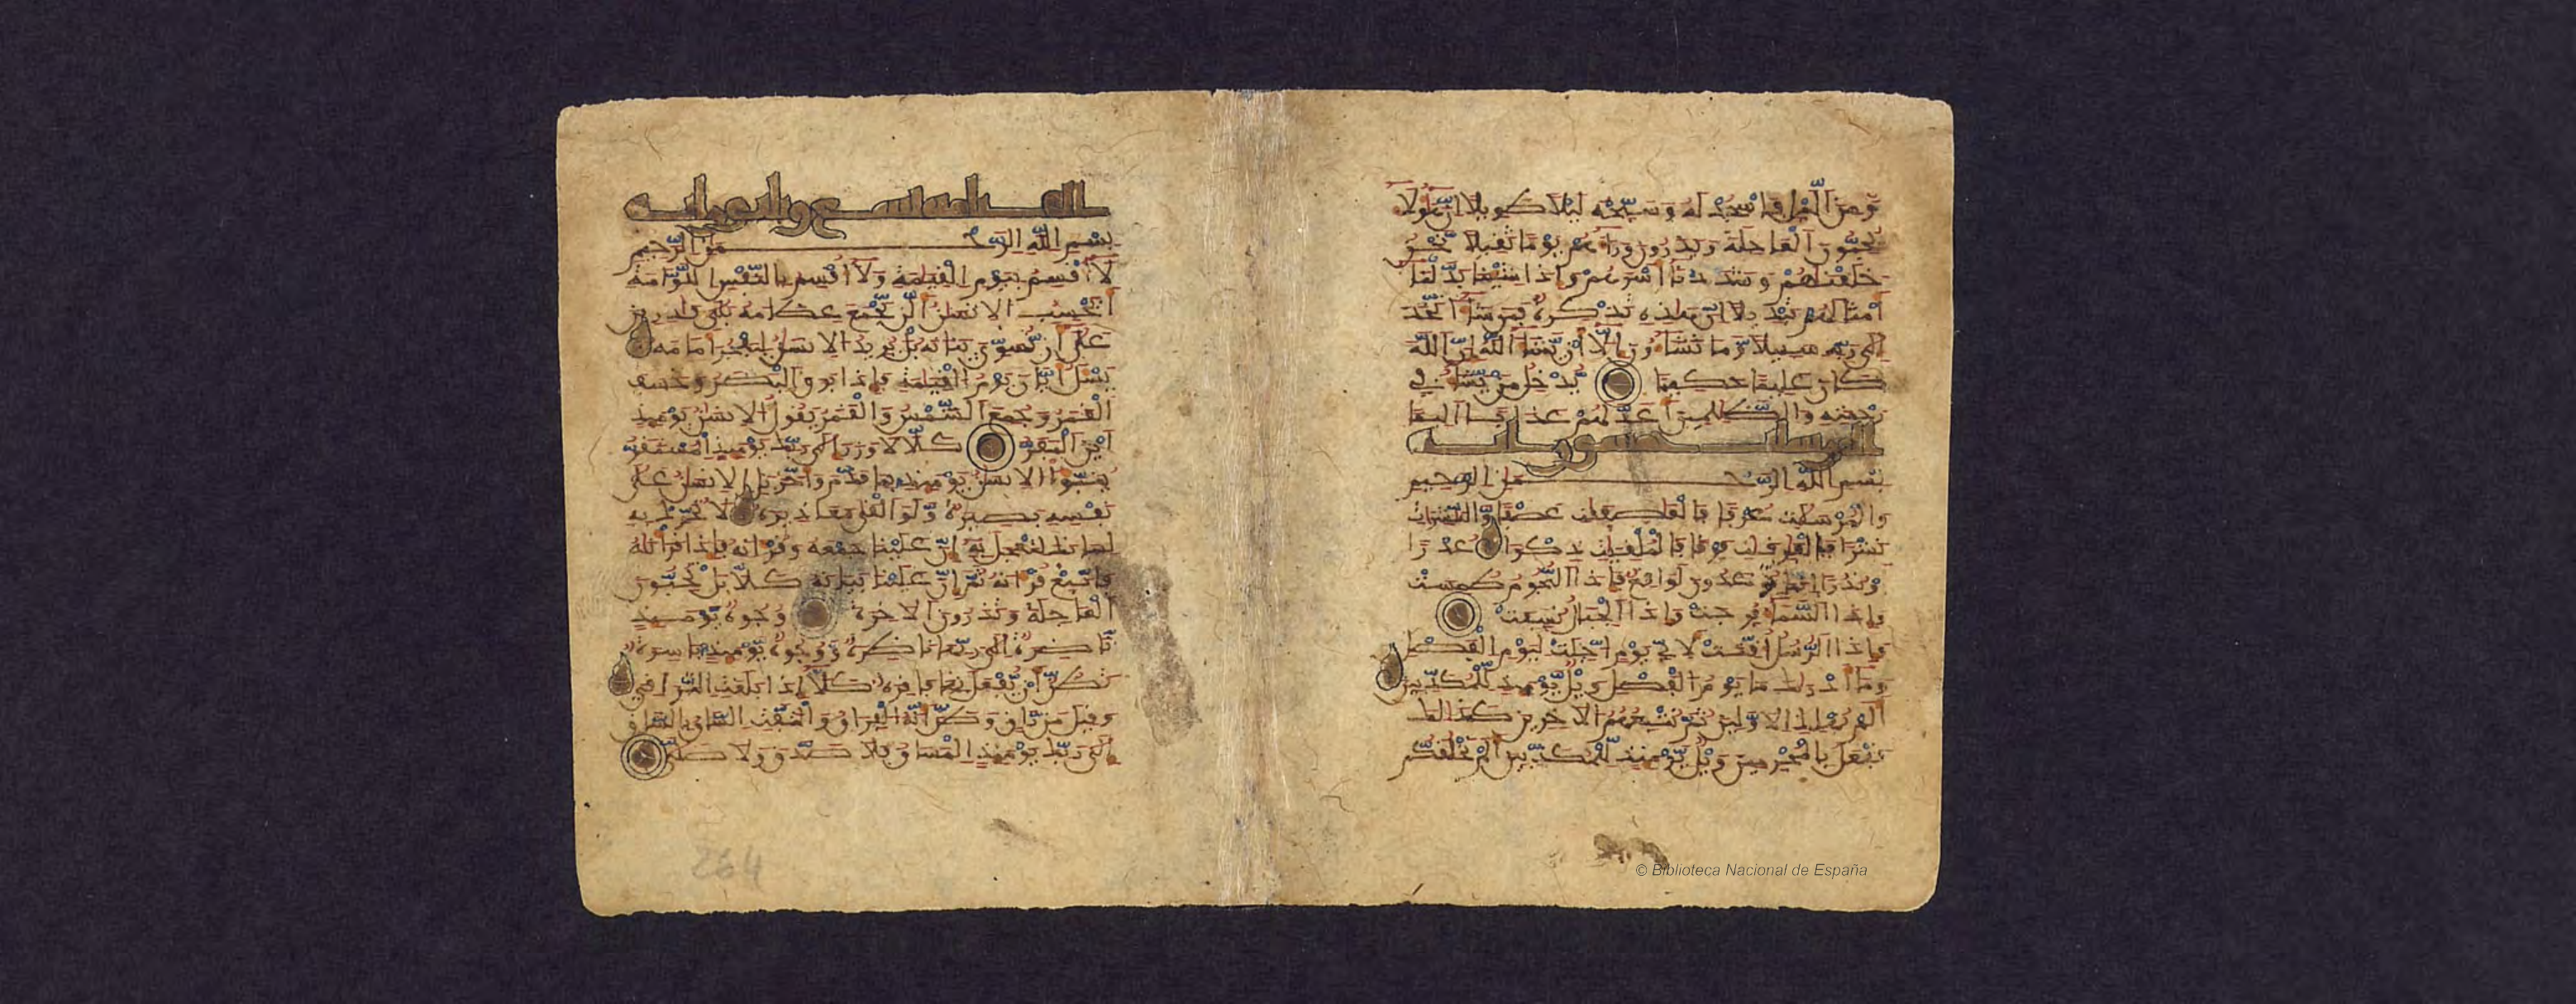 وَمِنَ الَّيْلِ فَاسْجُدْ لَهُ وَسَبِّحْهُ لَيْلًا طَوِيلًا اِنَّ هَؤُلَاءِ
يُحِبُّونَ الْعَاجِلَةَ وَيَذَرُونَ وَرَاءَهُمْ يَوْمًا ثَقِيلًا نَّحْنُ
خَلَقْنَاهُمْ وَشَدَدْنَا أَسْرَهُمْ وَإِذَا شِئْنَا بَدَّلْنَا
أَمْثَالَهُمْ تَبْدِيلًا اِنَّ هَذِهِ تَذْكِرَةٌ فَمَن شَاءَ اتَّخَذَ
إِلَى رَبِّهِ سَبِيلًا وَّمَا تَشَاءُونَ إِلَّا أَنْ يَّشَاءَ اللَّهُ إِنَّ اللَّهَ
كَانَ عَلِيمًا حَكِيمًا يُدْخِلُ مَنْ يَّشَاءُ فِي
رَحْمَتِهِ وَالظَّلِمِينَ أَعَدَّ لَهُمْ عَذَابًا أَلِيمًا
المرسلات خمسون اية
بِسْمِ اللَّهِ الرَّحْمَنِ الرَّحِيمِ
وَالْمُرْسَلَتِ عُرْفًا فَالْعَصِفَتِ عَصْفًا وَّالنَّشِرَتِ
نَشْرًا فَالْفَرِقَتِ فَرْقًا فَالْمُلْقِيَتِ ذِكْرًا عُذْرًا
اَوْ نُذُرًا اِنَّمَا تُوعَدُونَ لَوَاقِعٌ فَإِذَا النُّجُومُ طُمِسَتْ
وَإِذَا السَّمَاءُ فُرِجَتْ وَإِذَا الْجِبَالُ نُسِفَتْ
وَإِذَا الرُّسُلُ أُقِّتَتْ لِأَيِّ يَوْمٍ اُجِّلَتْ لِيَوْمِ الْفَصْلِ
وَمَا أَدْرَاكَ مَا يَوْمُ الْفَصْلِ وَيْلٌ يَّوْمَئِذٍ لِّلْمُكَذِّبِينَ
أَلَمْ نُهْلِكِ الْأَوَّلِينَ ثُمَّ نُتْبِعُهُمُ الْآخِرِينَ كَذَلِكَ
نَفْعَلُ بِالْمُجْرِمِينَ وَيْلٌ يَّوْمَئِذٍ لِّلْمُكَذِّبِينَ أَلَمْ نَخْلُقكُّم
القيامة تسع وثلثون اية
بِسْمِ اللَّهِ الرَّحْمَنِ الرَّحِيمِ
لَا أُقْسِمُ بِيَوْمِ الْقِيَمَةِ وَلَا أُقْسِمُ بِالنَّفْسِ اللَّوَّامَةِ
أَيَحْسِبُ الْإِنسَنُ أَلَّن نَّجْمَعَ عِظَامَهُ بَلَى قَدِرِينَ
عَلَى أَن نُّسَوِّيَ بَنَانَهُ بَلْ يُرِيدُ الْإِنسَنُ لِيَفْجُرَ أَمَامَهُ
يَسْئَلُ أَيَّانَ يَوْمُ الْقِيَمَةِ فَإِذَا بَرَقَ الْبَصَرُ وَخَسَفَ
الْقَمَرُ وَجُمِعَ الشَّمْسُ وَالْقَمَرُ يَقُولُ الْإِنسَنُ يَوْمَئِذٍ
اَيْنَ الْمَفَرُّ كَلَّا لَا وَزَرَ إِلَى رَبِّكَ يَوْمَئِذٍ الْمُسْتَقَرُّ
يُنَبَّؤُا الْإِنسَنُ يَوْمَئِذٍ بِمَا قَدَّمَ وَأَخَّرَ بَلِ الْإِنسَنُ عَلَى
نَفْسِهِ بَصِيرَةٌ وَّلَوْ أَلْقَى مَعَاذِيرَهُ لَا تُحَرِّكْ بِهِ
لِسَانَكَ لِتَعْجَلَ بِهِ إِنَّ عَلَيْنَا جَمْعَهُ وَقُرْءَانَهُ فَإِذَا قَرَأْنَهُ
فَاتَّبِعْ قُرْءَانَهُ ثُمَّ إِنَّ عَلَيْنَا بَيَانَهُ كَلَّا بَلْ تُحِبُّونَ
الْعَاجِلَةَ وَتَذَرُونَ الْآخِرَةَ وُجُوهٌ يَّوْمَئِذٍ
نَّاضِرَةٌ اِلَى رَبِّهَا نَاظِرَةٌ وَّوُجُوهٌ يَّوْمَئِذٍ بَاسِرَةٌ
تَظُنُّ أَنْ يُّفْعَلَ بِهَا فَاقِرَةٌ كَلَّا إِذَا بَلَغَتِ التَّرَاقِيَ
وَقِيلَ مَن رَّاقٍ وَظَنَّ أَنَّهُ الْفِرَاقُ وَالْتَفَّتِ السَّاقُ بِالسَّاقِ
إِلَى رَبِّكَ يَوْمَئِذٍ الْمَسَاقُ فَلَا صَدَّقَ وَلَا صَلَّى
264
© Biblioteca Nacional de España